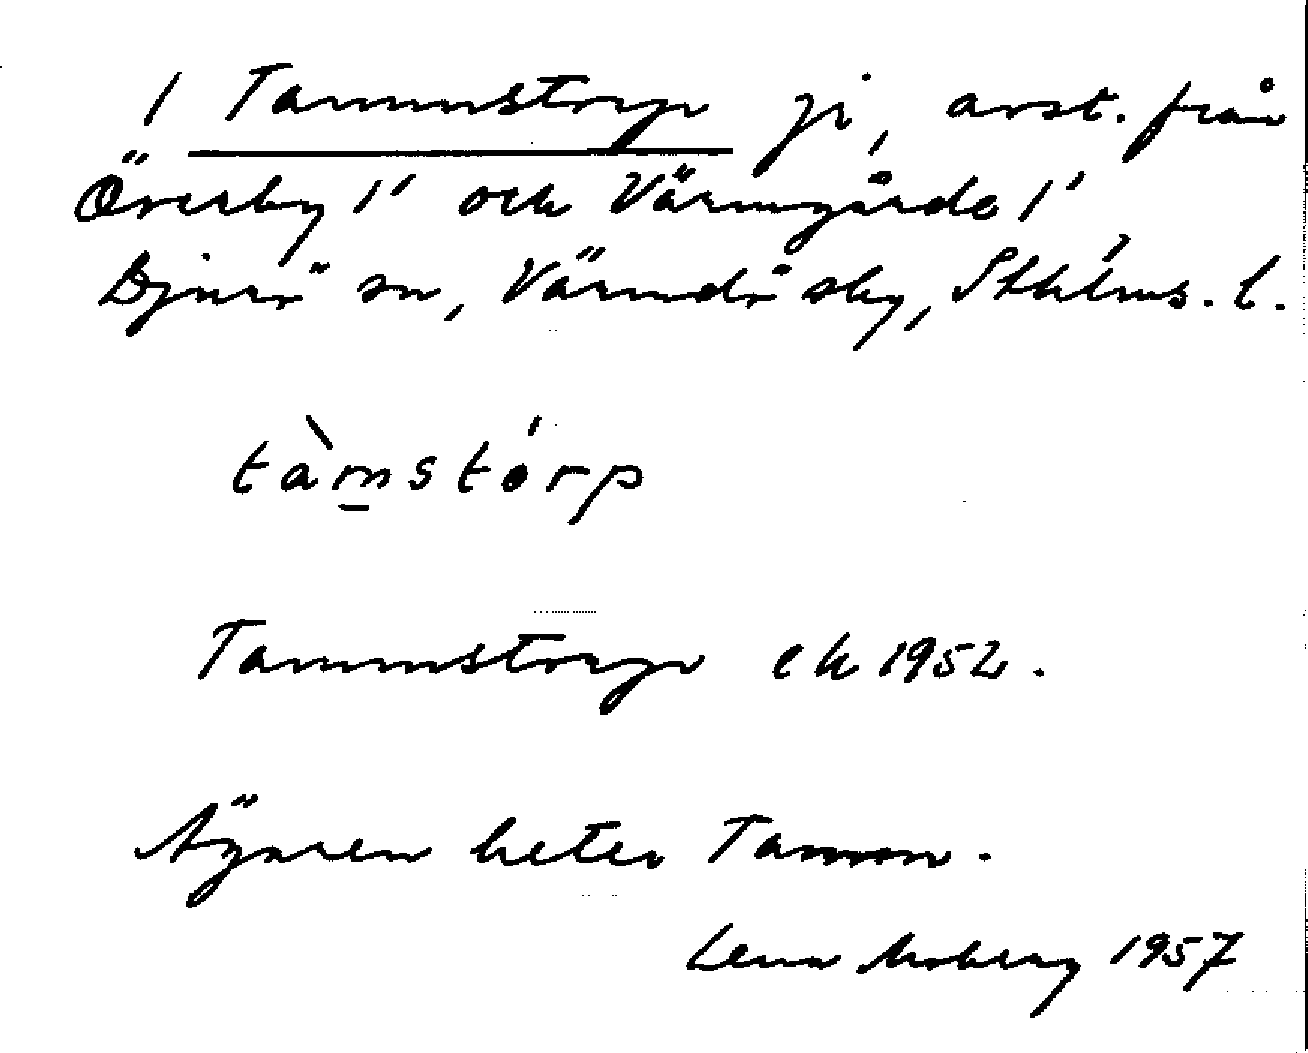 / Tammstorp ji, avst. från
Överby 1' och Värmgårde 1'
Djurö sn, Värmdö sky, Sthlms. l.
tàmstórp
Tammstorp ek 1952.
Ägaren heter Tamm.
Lena Moberg 1957